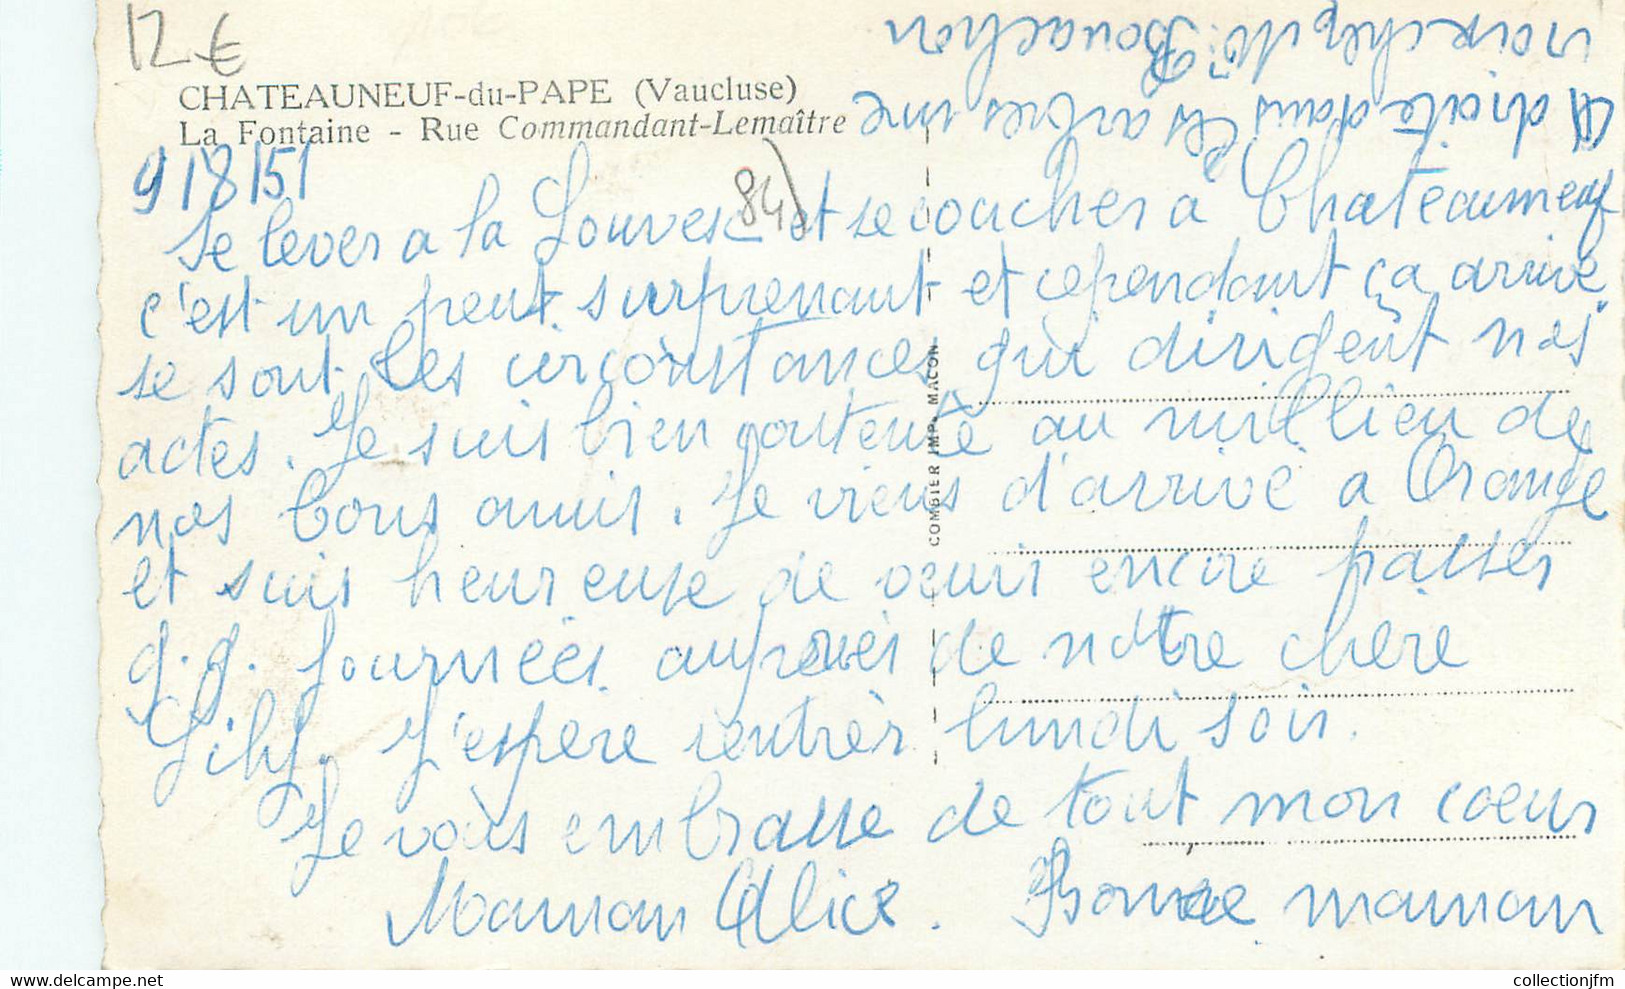 12 €
CHATEAUNEUF-du-PAPE (Vaucluse)
La Fontaine - Rue Commandant-Lemaître
9/8/51
84)
Se lever a la Louvesc et se coucher a Chateauneuf
c'est un peut surprenant et cependant ça arrive
se sont les circonstances qui dirigent nos
actes. Je suis bien contente au millieu de
nos bons amis. Je viens d'arrivé a Orange
et suis heureuse de venir encore passer
q.q. journées auprès de notre chère
Lily. J'espère rentrér lundi soir.
Je vous embrasse de tout mon coeur
Maman Alice. Bonne maman
A droite dans les arbres une
chez Mr. Bouachon
COMBIER IMP. MACON
collectionjfm